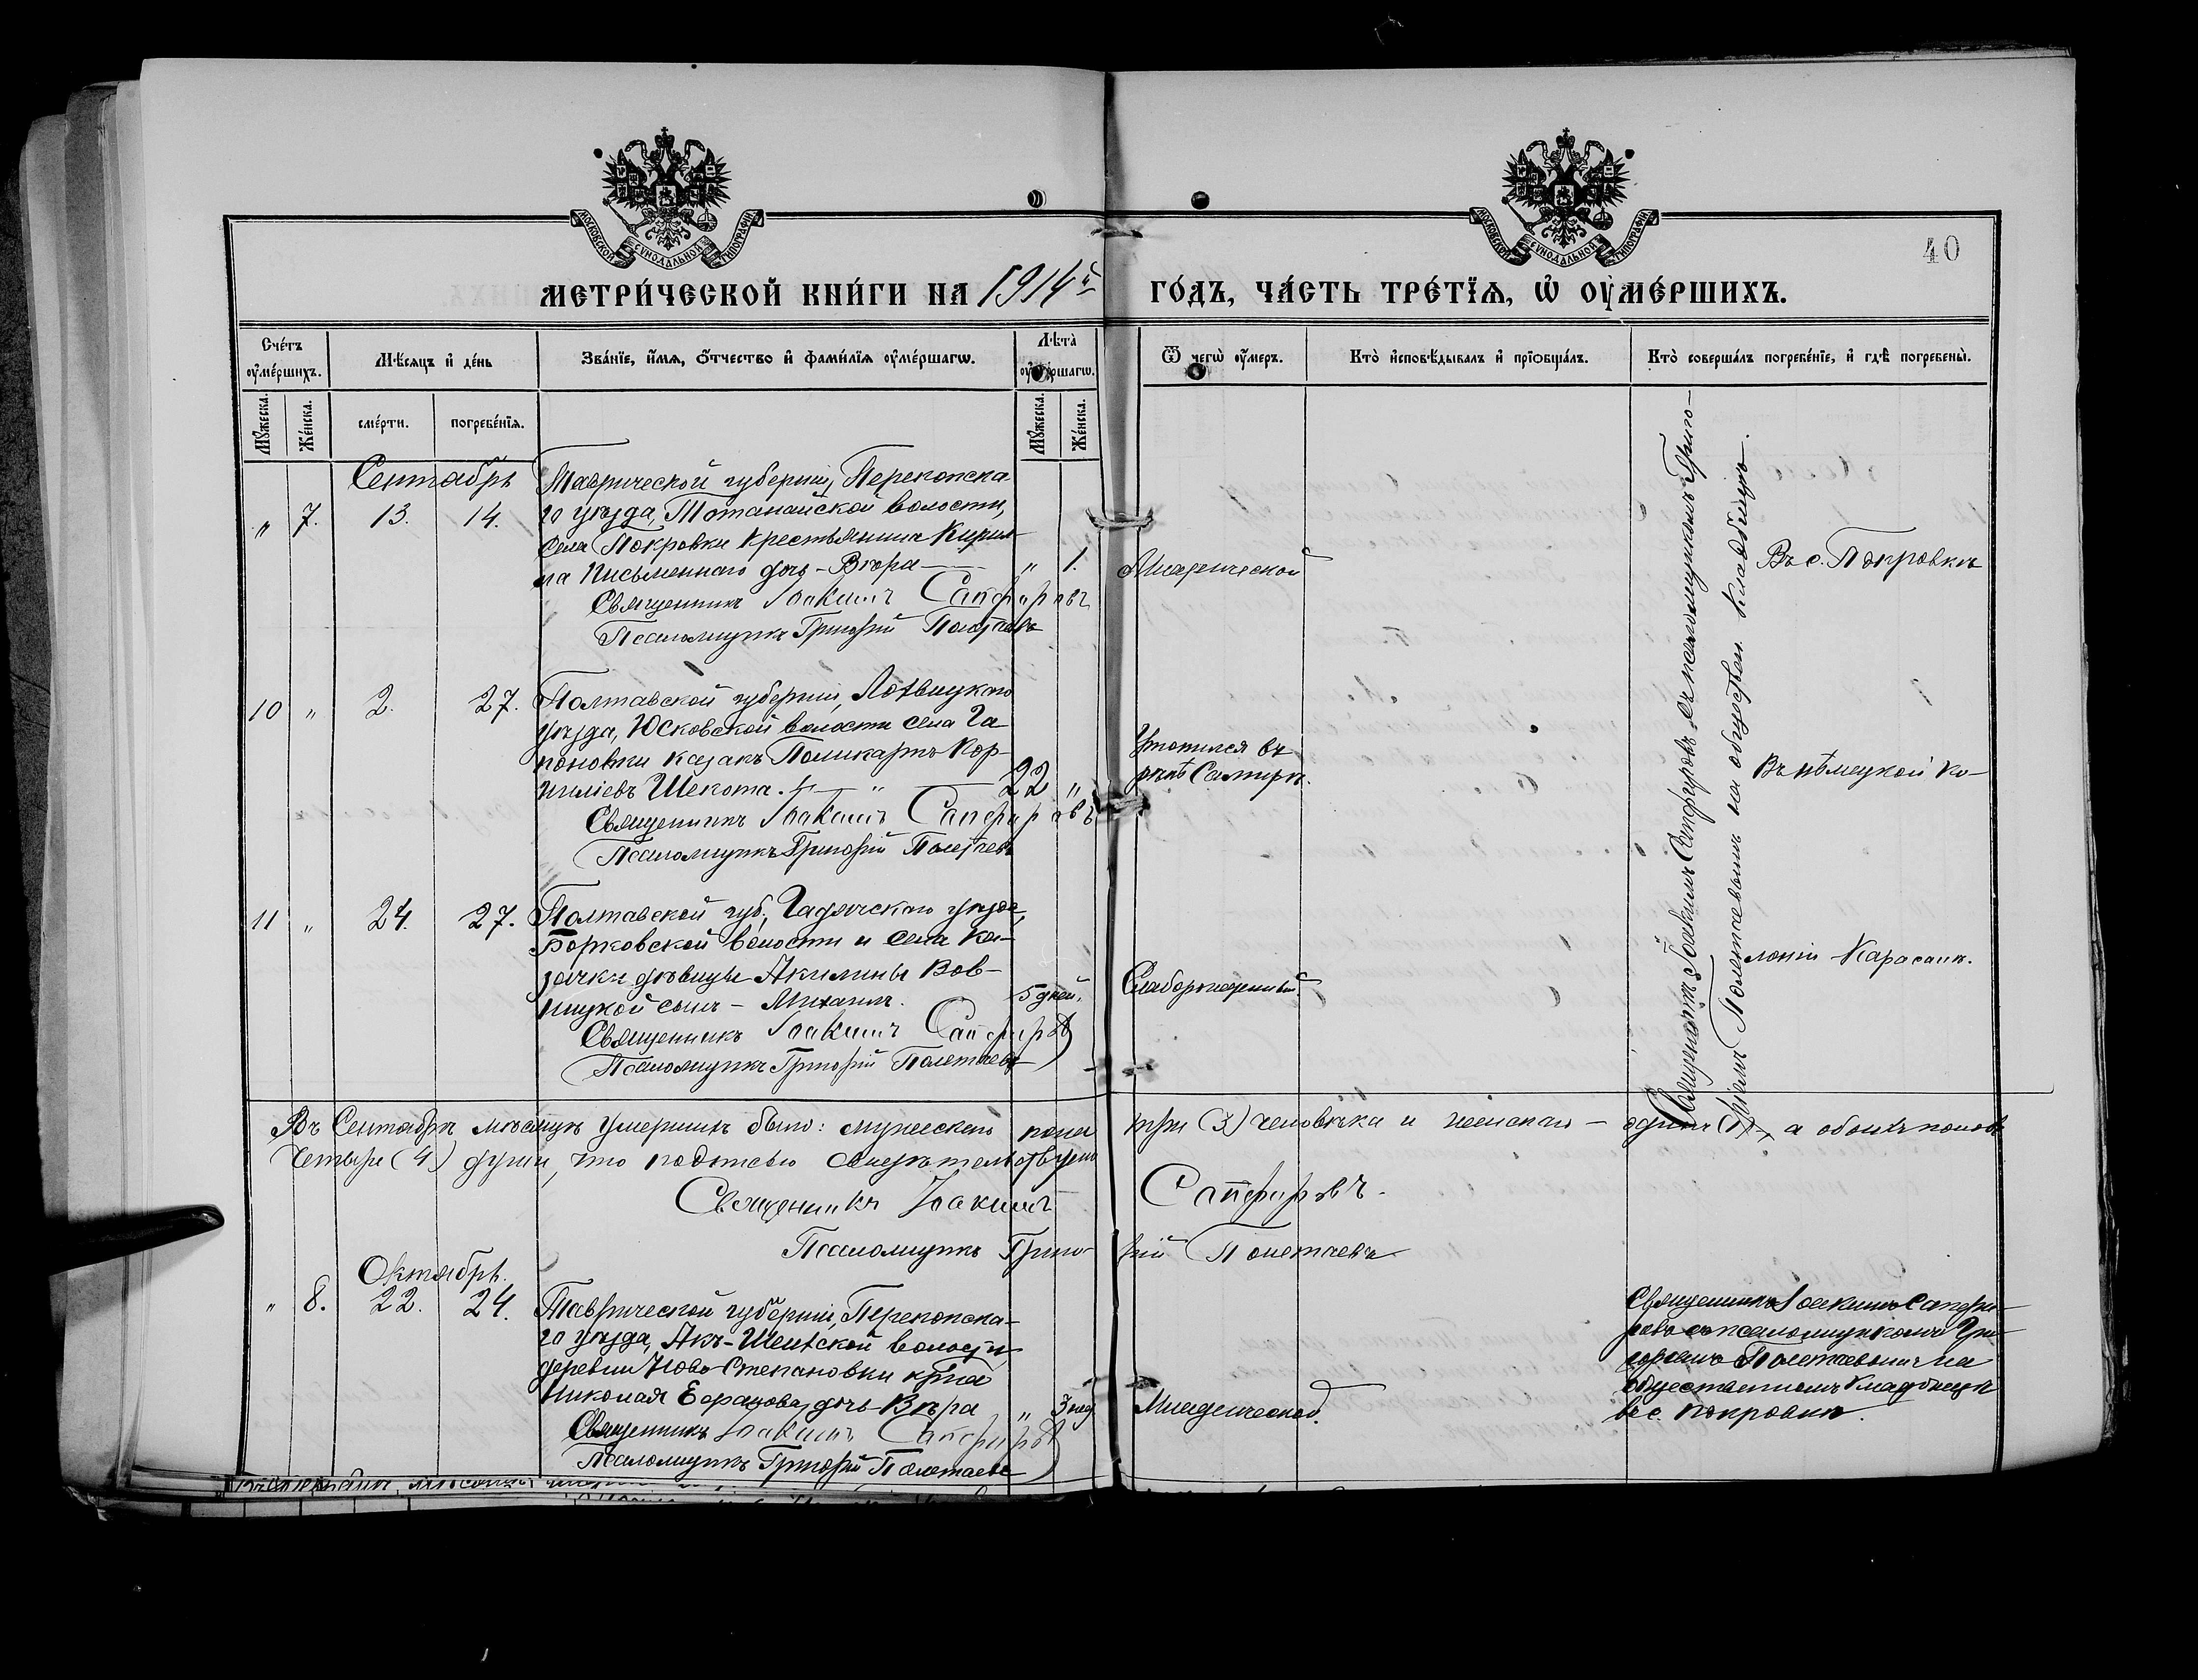 МОСКОВСКОЙ СУНОДАЛЬНОЙ ТИПОГРАФІИ
МОСКОВСКОЙ СУНОДАЛЬНОЙ ТИПОГРАФІИ
40
МЕТРИ́ЧЕСКОЙ КНИ́ГИ НА 1914й ГО́ДЪ, ЧА́СТЬ ТРЕ́ТЇѦ, Ѡ҆ ОУ҆МЕ́РШИХЪ.
Сче́тъ оу҆ме́ршихъ.
Мѣ́сѧцъ и҆ де́нь
Зва́нїе, и҆́мѧ, ѻ҆́тчество и҆ фами́лїѧ оу҆ме́ршагѡ.
Лѣта̀ оу҆ме́ршагѡ.
Ѿ чегѡ̀ оу҆́меръ.
Кто̀ и҆сповѣ́дывалъ и҆ прїѡбща́лъ.
Кто̀ соверша́лъ погребе́нїе, и҆ гдѣ̀ погребены̀.
Мꙋ́жеска.
Же́нска.
сме́рти.
погребе́нїѧ.
Мꙋ́жеска.
Же́нска.
Сентябрь
" 7. 13. 14.
Таврической губерніи, Перекопска
го уѣзда, Тотанайской волости,
села Покровки крестьянина Кирил-
ла Письменнаго дочь - Вѣра " 1.
Священникъ Іоакимъ Сапфировъ
Псаломщикъ Григорій Полетаевъ
Младенческой
Въ с. Покровкѣ
10 " 2. 27.
Полтавской губерніи, Лохвицкаго
уѣзда, Юсковской волости села Га
поновки казакъ Поликарпъ Кор-
ниліевъ Шекота. 22 "
Священникъ Іоакимъ Сапфировъ
Псаломщикъ Григорій Полетаевъ
Утопился въ
рѣкѣ Салгирѣ.
Въ нѣмецкой ко-
11 " 24. 27.
Полтавской губ., Гадячскаго уѣзда,
Борковской волости и села ка-
зачки дѣвицы Акилины Вов-
ницкой сынъ - Михаилъ. 5 дней.
Священникъ Іоакимъ Сапфировъ
Псаломщикъ Григорій Полетаевъ
Слаборожденный.
лоніи Карасанъ.
Священникъ Іоакимъ Сапфировъ съ псаломщикомъ Григо-
ріемъ Полетаевымъ на обществен. кладбищѣ.
Въ Сентябрѣ мѣсяцѣ умершихъ было: мужескаго пола три (3) человѣка и женскаго - одинъ (1), а обоихъ половъ
четыре (4) души, что подписью свидѣтельствуемъ
Священникъ Іоакимъ Сапфировъ.
Псаломщикъ Григо-рій Полетаевъ
Октябрь.
" 8. 22. 24.
Таврической губерніи, Перекопска-
го уѣзда, Акъ-Шеихской волости
деревни Ново Степановки кр-на
Николая дочь Вѣра " 3 нед.
Священникъ Іоакимъ Сапфировъ
Псаломщикъ Григорій Полетаевъ
Младенческой.
Священникъ Іоакимъ Сапфи-
ровъ съ псаломщикомъ Гри-
горіемъ Полетаевымъ на
общественномъ кладбищѣ
въ с. Покровкѣ.